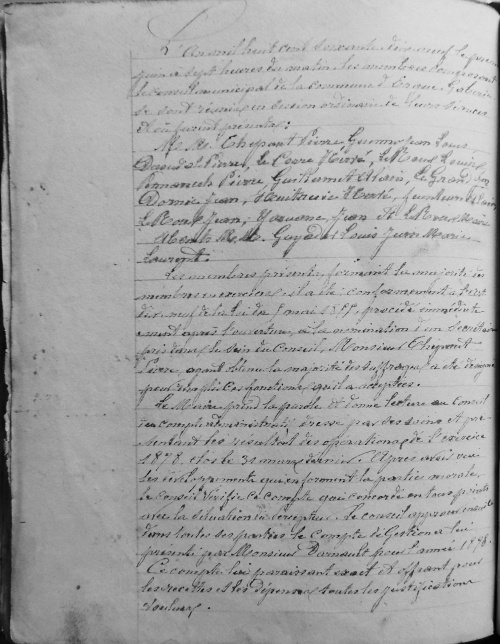 L'An mil huit cent soixante dix neuf le premier
juin à sept heures du matin les membres composant
le conseil municipal de la commune d'Ergué Gabéric
se sont réunis en session ordinaire de
où furent présents:
M. M. Chopart Pierre Guenno Jean Louis
Pierre, Le Corre Hervé, Le Naour Louis
Pierre Guillamet Alain, Le Grand
Jean, Hervé, Alain
Le Jean, Jean et Le
Absents M. M. Guyader Louis Jean Marie
Laurent.
Les membres présents formant la majorité des
membres en exercice, il a été conformément à l'art
de la loi du 5 mai 1855, procédé immédiate
ment après l'ouverture, à la nomination d'un Secrétaire
pris dans le sein du Conseil, Monsieur Chopart
Pierre, ayant obtenu la majorité des suffrages, a été désigné
pour remplir ces fonctions qu'il a acceptées.
Le Maire prend la parole et donne lecture au Conseil
du compte administratif dressé par ses soins et pré
sentant les résultats des opérations de l'exercice
1878 clos le 31 mars dernier. Après avoir
les développements qui en forment la partie morale
le conseil vérifie ce compte qui concorde en tous points
avec la situation du percepteur. Le conseil approuve ensuite
dans toutes ses parties le Compte de Gestion à lui
présenté par Monsieur Darnault pour l'année 1878.
Ce compte lui paraissant exact et offrant pour
les recettes et les dépenses toutes les justifications
voulues.